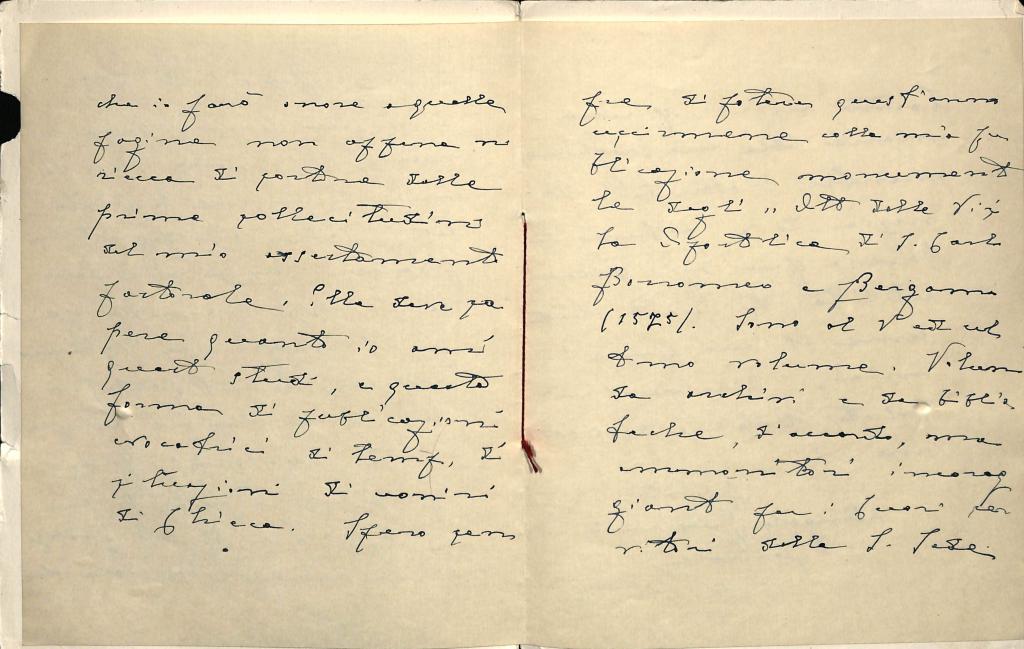 che io farò onore a queste
pagine non appena mi
riesca di sortire dalle
prime sollecitudini
del mio assestamento
pastorale. Ella deve sa
pere quanto io ami
questi studi, e questa
forma di pubblicazioni
evocatrici di tempi, di
istituzioni di uomini
di Chiesa. Spero sem
pre di poterne quest'anno
uscirmene colla mia pu
blicazione monumenta
le degli "Atti della Visi
ta Apostolica di S. Carlo
Borromeo a Bergamo
(1575). Sono al V ed ul
timo volume. Volumi
da archivi e da biblio
teche, d'accordo, ma
ammonitori incorag
gianti per i buoni ser
vitori della S. Sede.